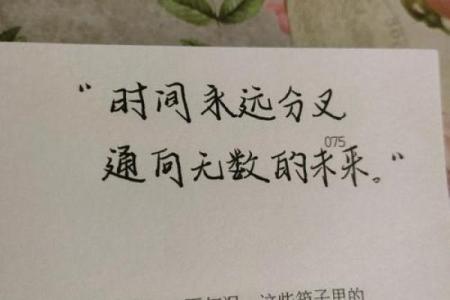 “时间永远分叉
075
通向无数的未来。“
这些箱子里的